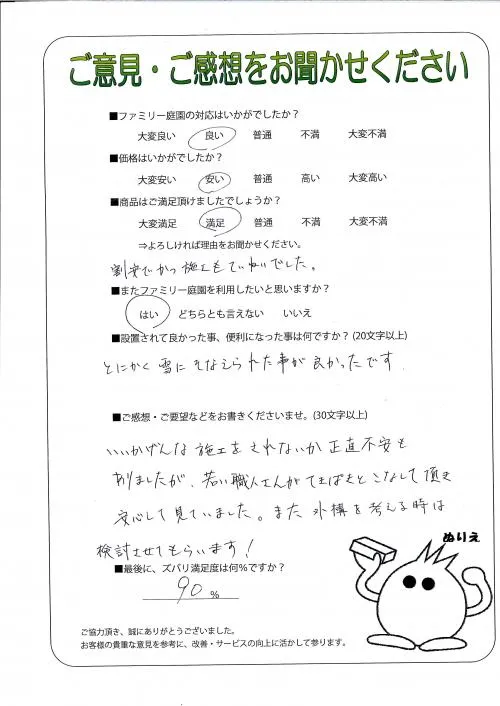 ご意見・ご感想をお聞かせください
■ファミリー庭園の対応はいかがでしたか?
大変良い 良い 普通 不満 大変不満
■価格はいかがでしたか?
大変安い 安い 普通 高い 大変高い
■商品はご満足頂けましたでしょうか?
大変満足 満足 普通 不満 大変不満
⇒よろしければ理由をお聞かせください。
割安でかつ施工もていねいでした。
■またファミリー庭園を利用したいと思いますか?
はい どちらとも言えない いいえ
■設置されて良かった事、便利になった事は何ですか? (20文字以上)
とにかく雪にそなえられた事が良かったです
■ご感想・ご要望などをお書きくださいませ。(30文字以上)
いいかげんな施工をされないか正直不安も
ありましたが、若い職人さんがてきぱきとこなして頂き
安心して見ていました。また外構を考える時は
検討させてもらいます!
■最後に、ズバリ満足度は何%ですか?
90 %
ぬりえ
ご協力頂き、誠にありがとうございました。
お客様の貴重な意見を参考に、改善・サービスの向上に活かして参ります。